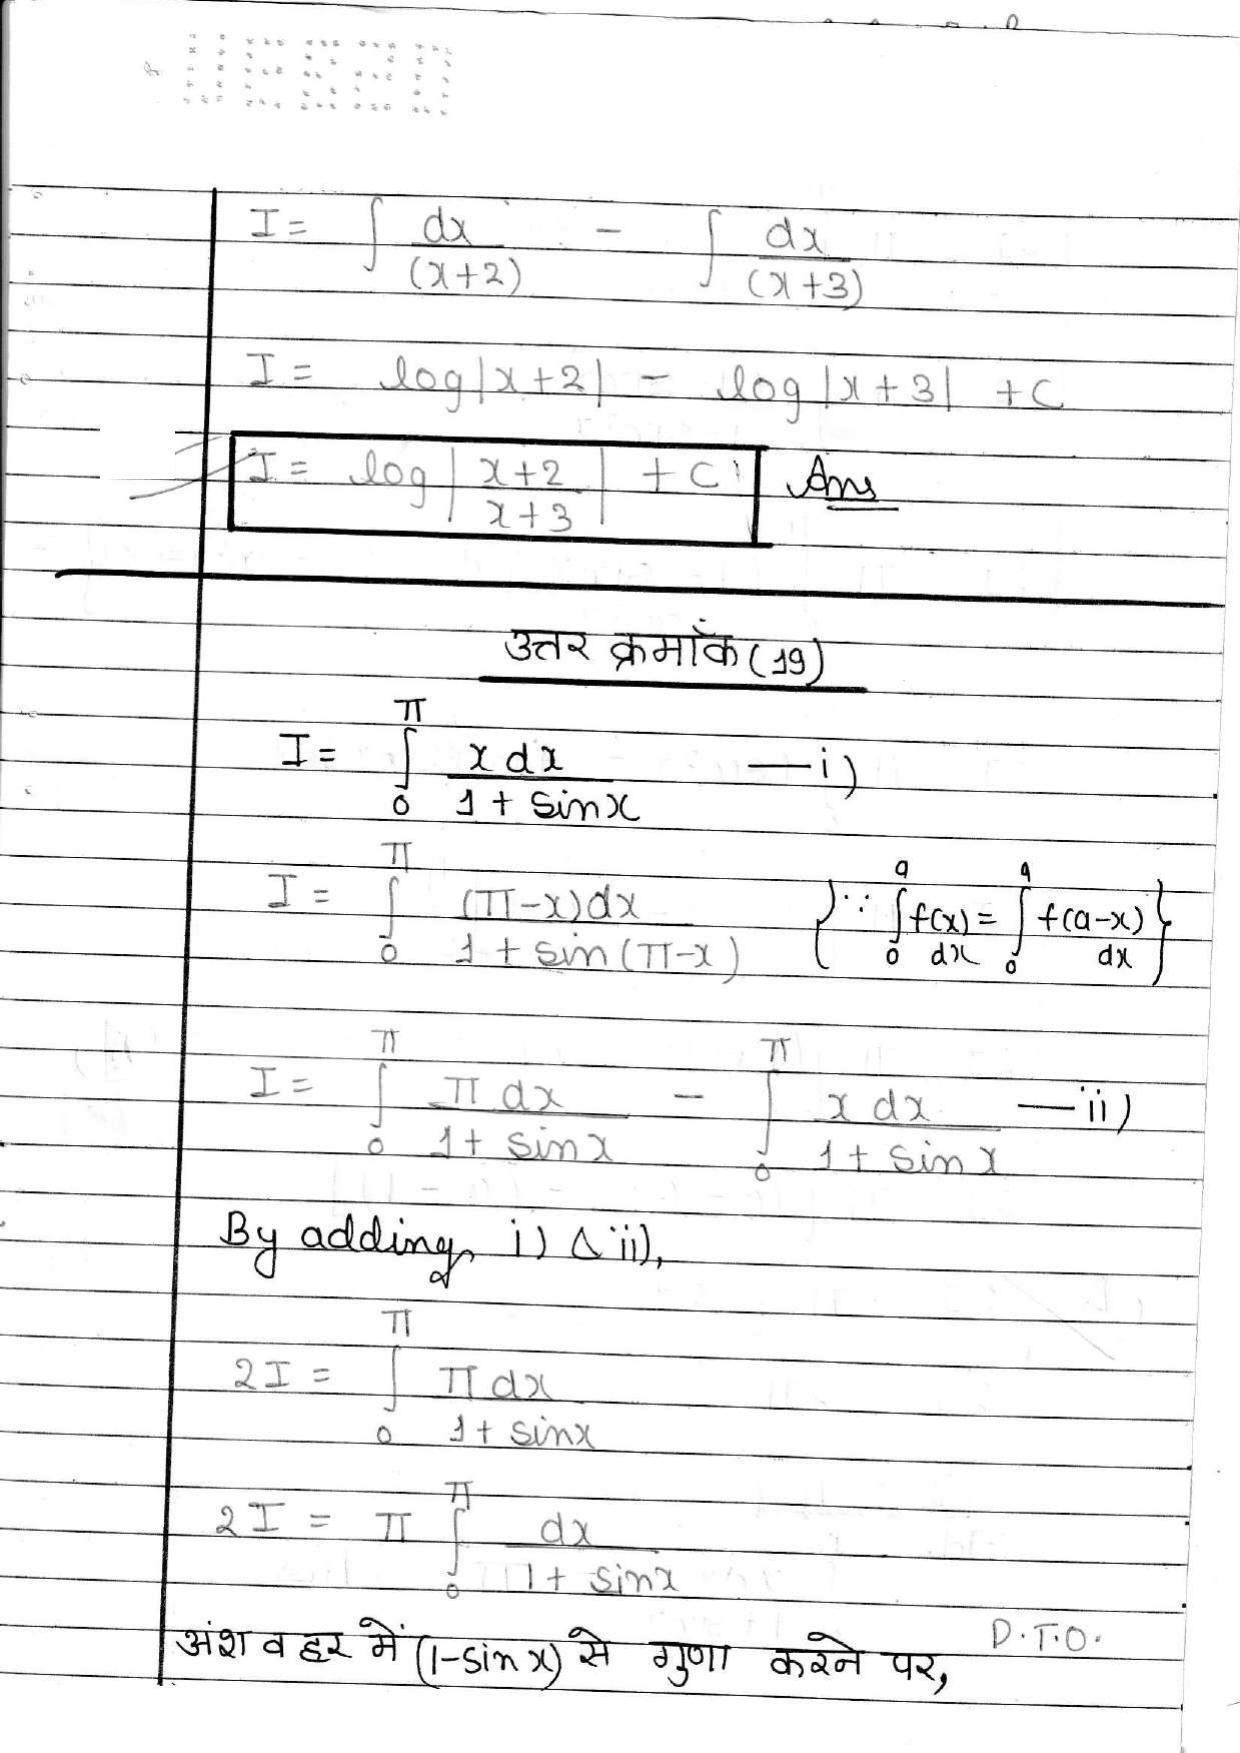 I = ∫ dx/(x+2) - ∫ dx/(x+3)
I = log|x+2| - log|x+3| + C
I = log|x+2/x+3| + C Ans
उत्तर क्रमाँक (19)
I = ∫₀^π x dx/1 + sinx — i)
I = ∫₀^π (π-x)dx/1 + sin(π-x) {∵ ∫₀^a f(x) dx = ∫₀^a f(a-x) dx}
I = ∫₀^π π dx/1 + sinx - ∫₀^π x dx/1 + sinx — ii)
By adding, i) & ii),
2I = ∫₀^π π dx/1 + sinx
2I = π ∫₀^π dx/1 + sinx
अंश व हर में (1-sinx) से गुणा करने पर,
P.T.O.